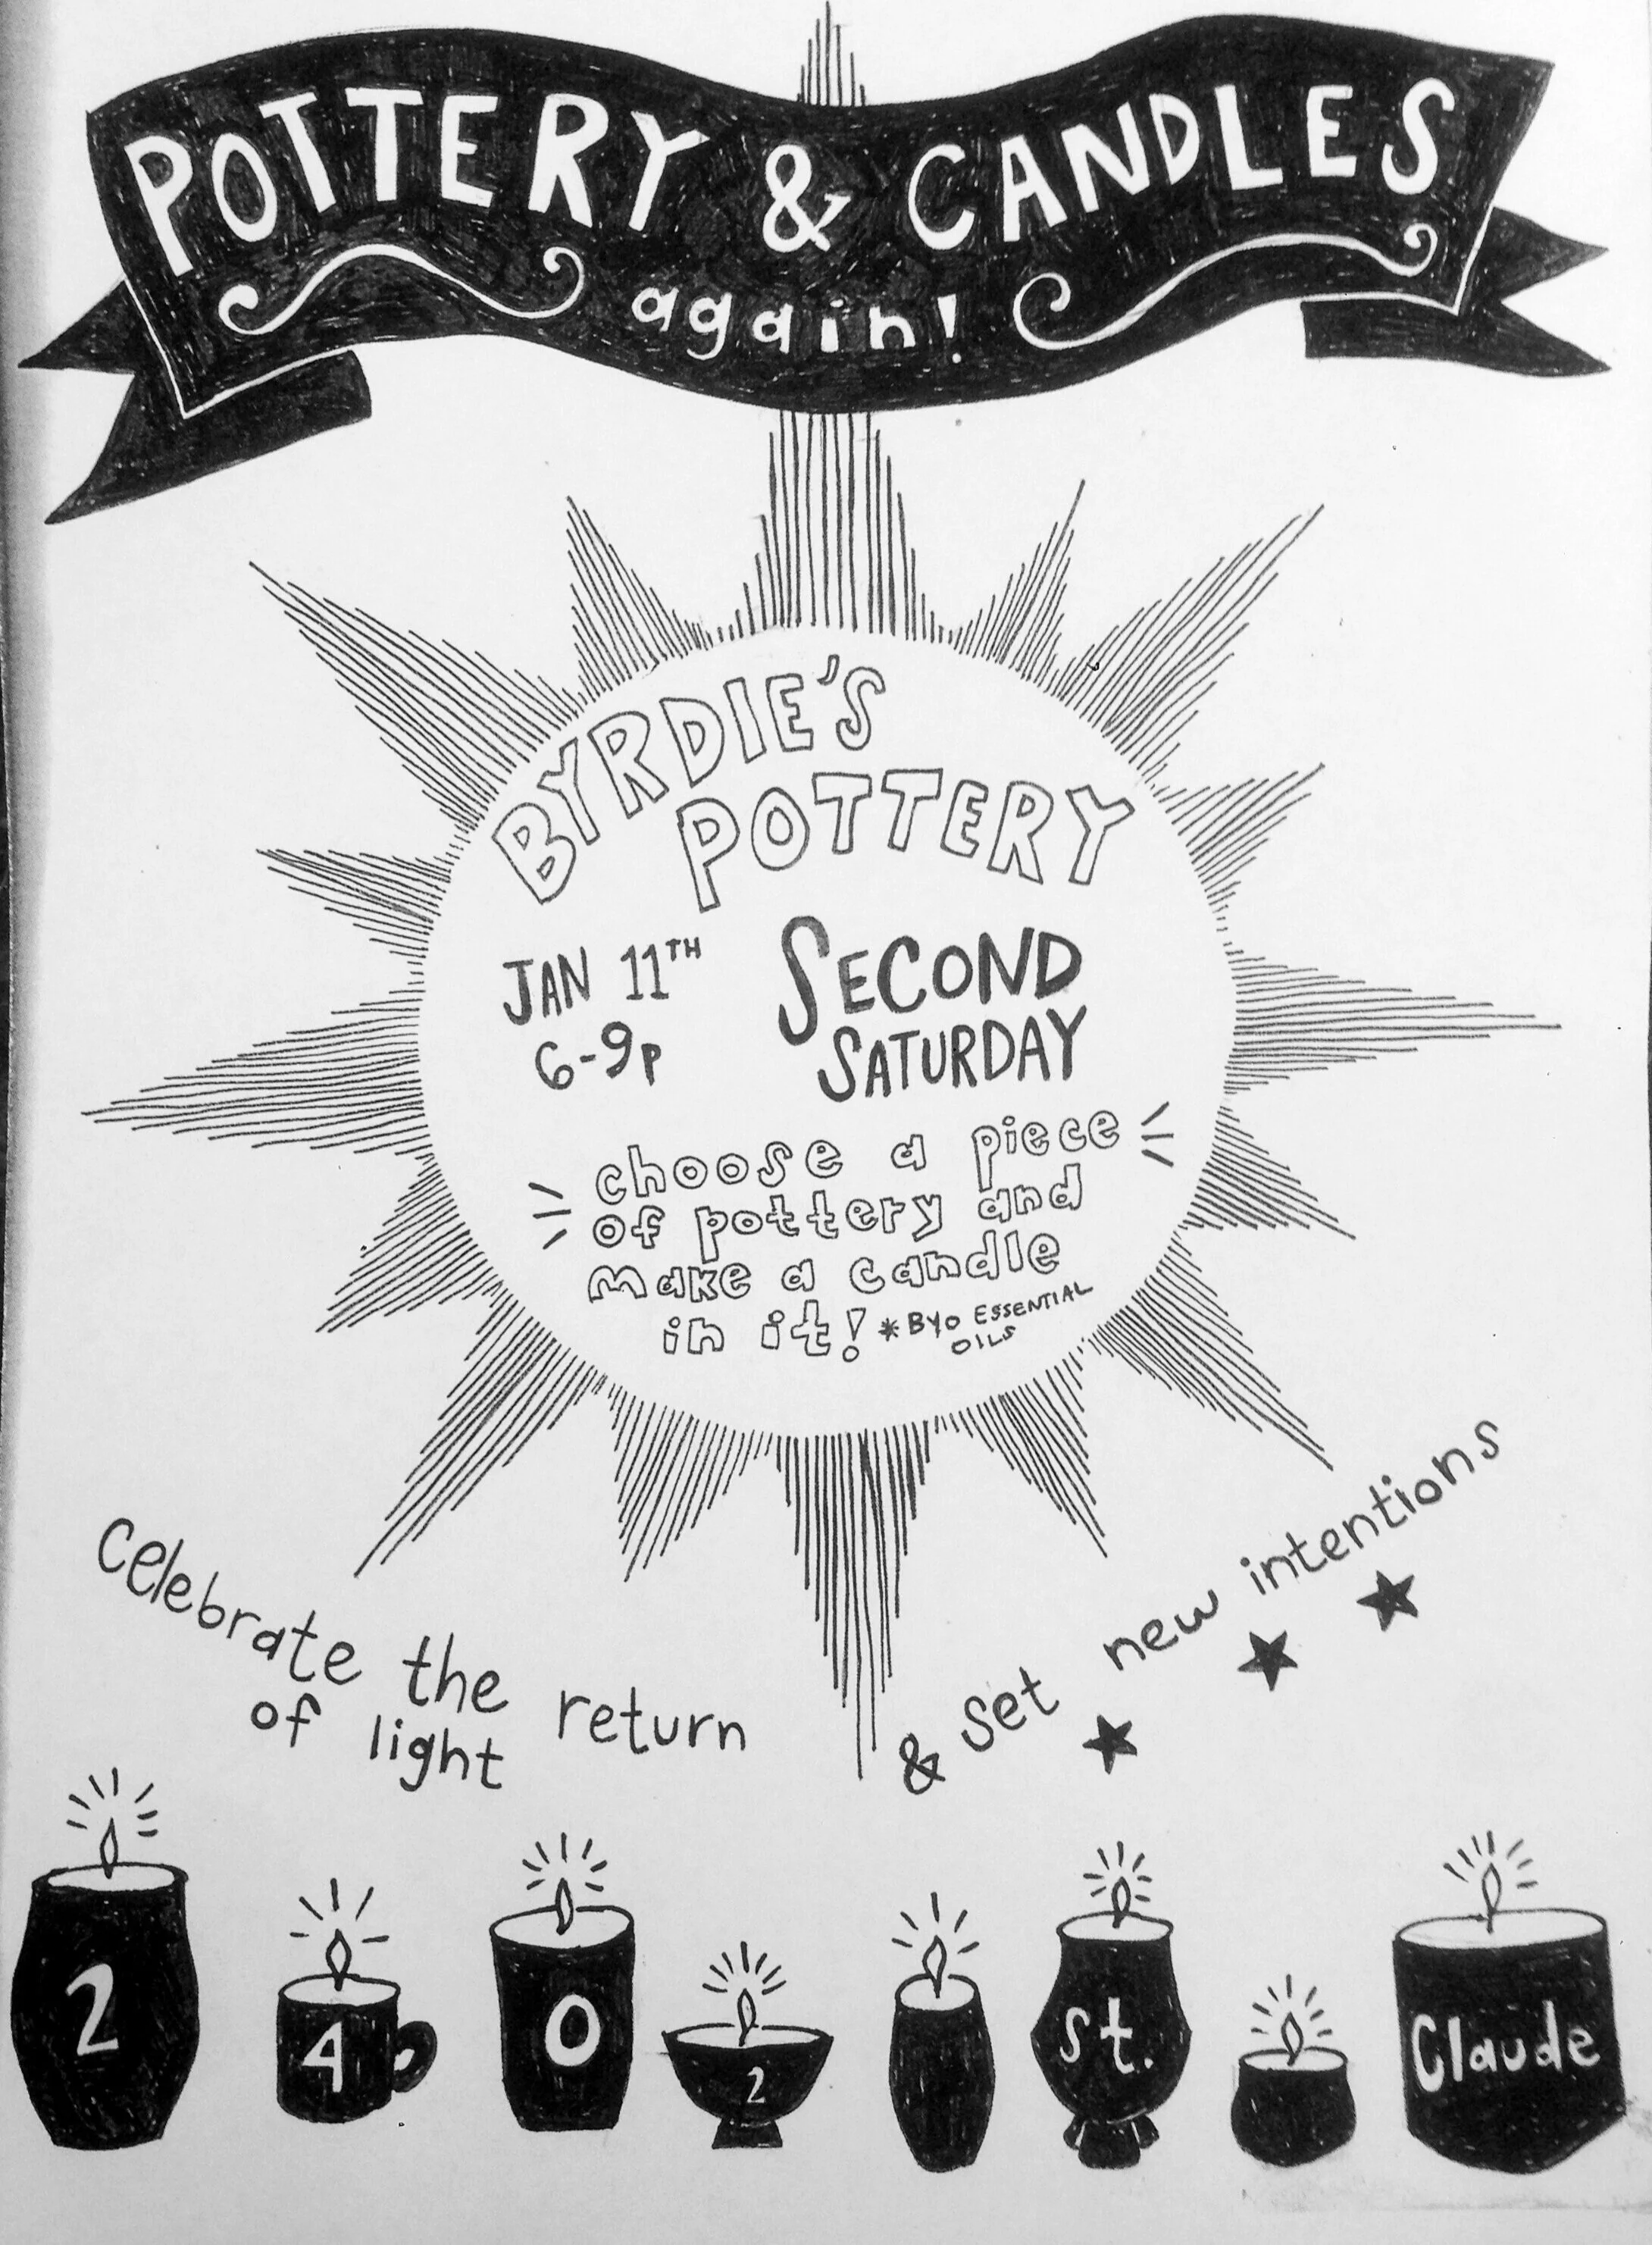 POTTERY & CANDLES
again!
BYRDIE'S
POTTERY
JAN 11TH
6-9P
SECOND
SATURDAY
choose a piece
of pottery and
make a candle
in it! *BYO ESSENTIAL
OILS
Celebrate the return
of light
& set new intentions
2 4 0 2 St. Claude